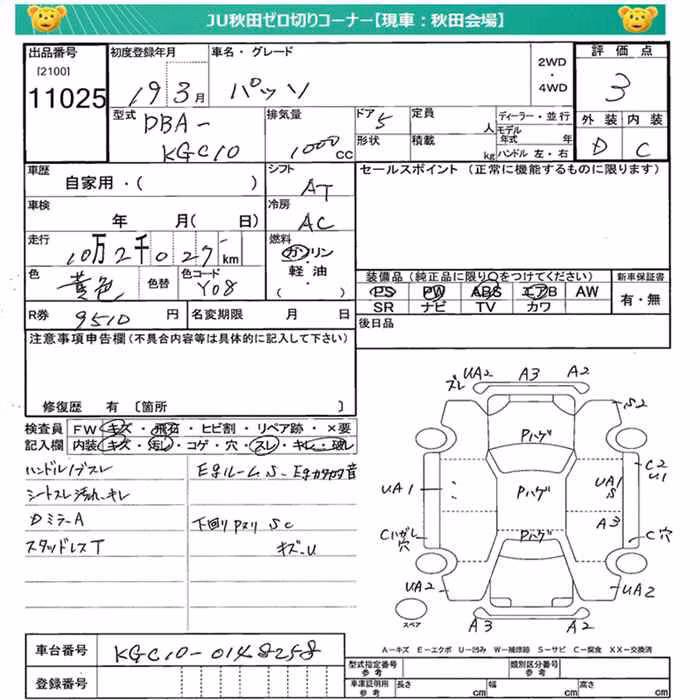 JU秋田ゼロ切りコーナー【現車：秋田会場】
出品番号
[2100]
11025
初度登録年月
19 3月
車名・グレード
パッソ
2WD
・
4WD
評価点
3
外装 内装
D C
型式
DBA-
KGC10
排気量
1000cc
ドア 5
形状
定員 人
積載 kg
ディーラー・並行
モデル年式 年
ハンドル 左・右
車歴
自家用・( )
シフト
AT
セールスポイント（正常に機能するものに限ります）
車検
年 月( 日)
冷房
AC
走行
10万2千027km
燃料
ガソリン
・
軽油
( )
色
黄色
色替
色コード
Y08
装備品（純正品に限り〇をつけてください）
PS PW ABS エアB AW
SR ナビ TV カワ
新車保証書
有・無
R券 9510円
名変期限 月 日
後日品
注意事項申告欄（不具合内容等は具体的に記入して下さい）
修復歴 有 〔箇所 〕
検査員
記入欄
FW キズ・飛石・ヒビ割・リペア跡・×要
内装 キズ・汚レ・コゲ・穴・スレ・キレ・破レ
ハンドルノブスレ
シートスレ汚れ、キレ
Dミラ-A
スタッドレスT
Egルーム S、Egカタカタ音
下回りPスリ SC
キズ、U
ズレ UA2 A3 A2
S2
Pハゲ
UA1
Pハゲ
UA1
S
C2
U1
A3
Cハガレ
穴
Pハゲ
C穴
UA2
UA2
スペア
A3 A2
A－キズ E－エクボ U－凹み W－補修跡 S－サビ C－腐食 XX－交換済
車台番号 KGC10-0148258
登録番号
型式指定番号
参考
類別区分番号
参考
車庫証明用
参考
長さ cm 幅 cm 高さ cm